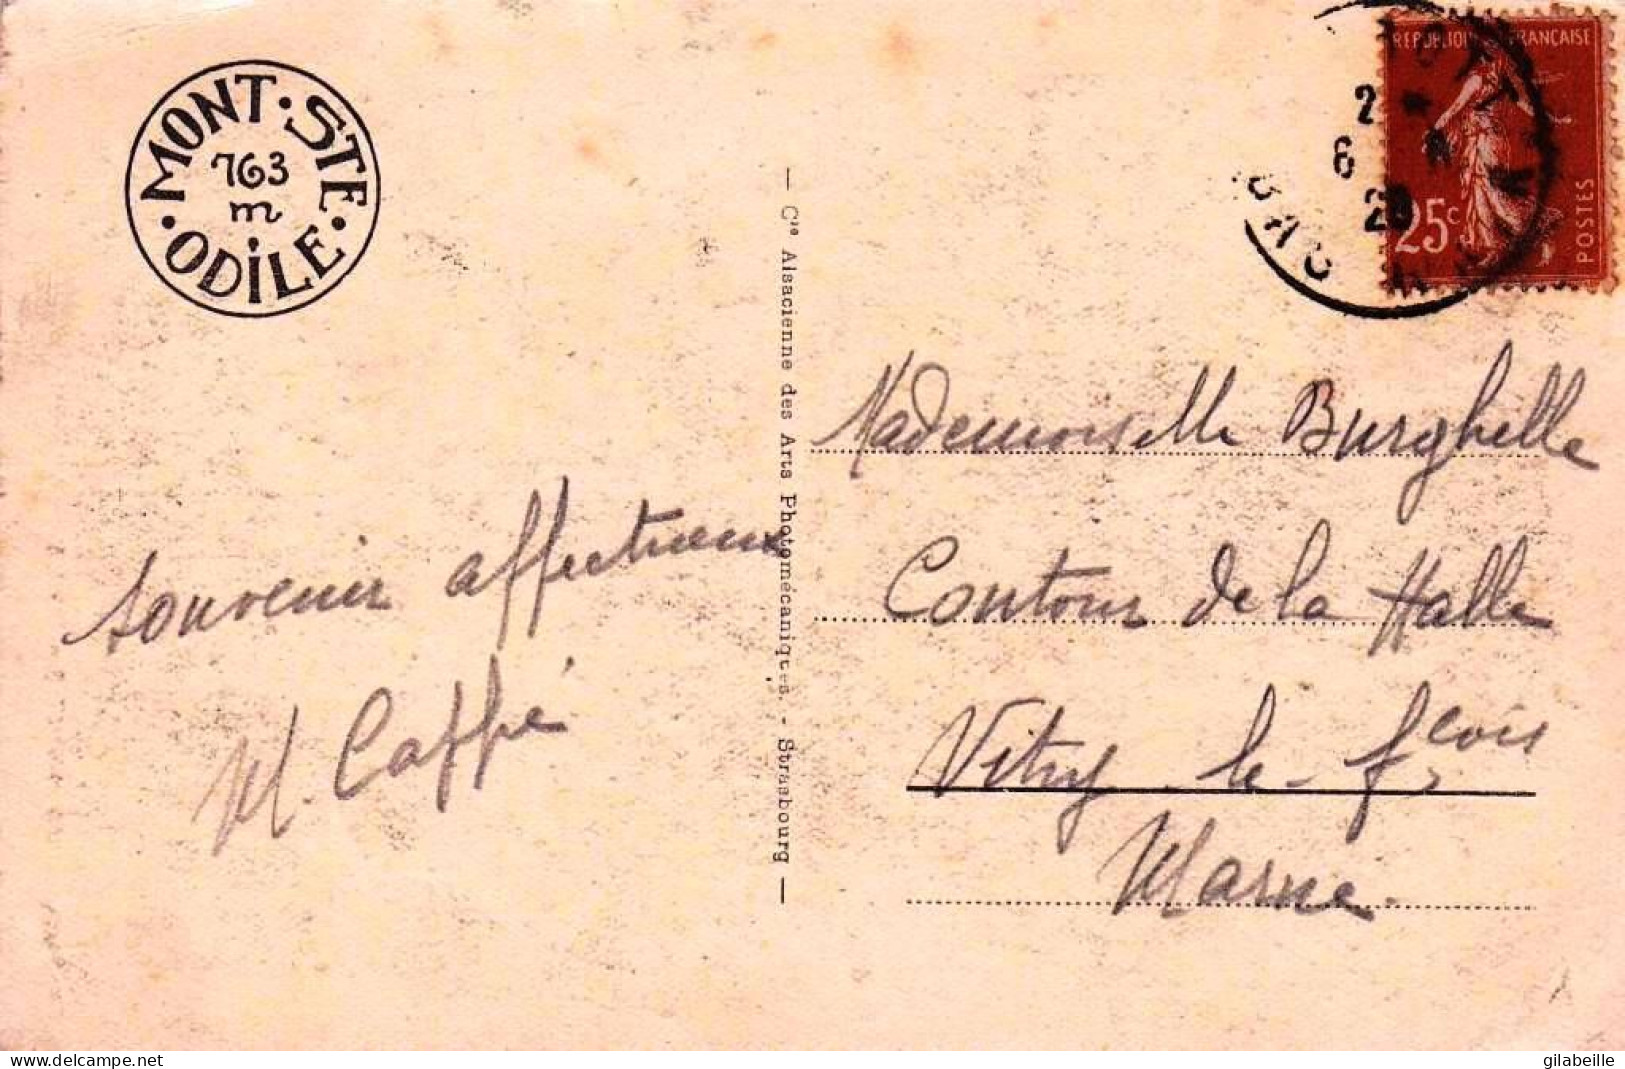 MONT · STE · ODILE ·
763
m
RÉPUBLIQUE FRANÇAISE
25c
POSTES
2
6
— Cie Alsacienne des Arts Photomécaniques. - Strasbourg —
Mademoiselle Burghelle
Contour de la Halle
Vitry - le - fçois
Marne.
Souvenir affectueux
M. Caffé
www.delcampe.net
gilabeille